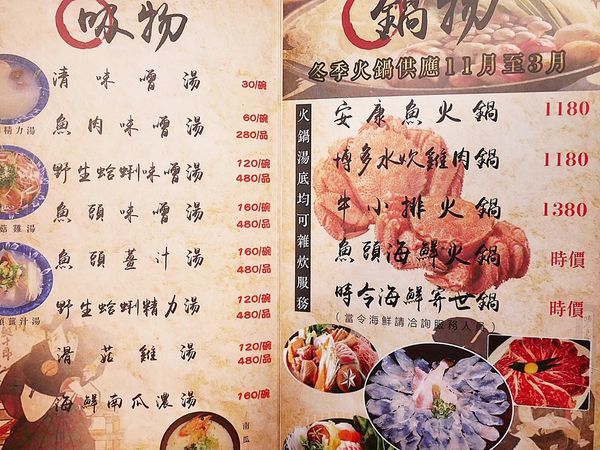 吸物
清味噌湯 30/碗
魚肉味噌湯 60/碗
280/品
野生蛤蜊味噌湯 120/碗
480/品
魚頭味噌湯 160/碗
480/品
魚頭薑汁湯 160/碗
480/品
野生蛤蜊精力湯 120/碗
480/品
滑菇雞湯 120/碗
480/品
海鮮南瓜濃湯 160/碗
精力湯
菇雞湯
頭薑汁湯
南瓜
鍋物
冬季火鍋供應11月至3月
火鍋湯底均可雜炊服務
安康魚火鍋 1180
博多水炊雞肉鍋 1180
牛小排火鍋 1380
魚頭海鮮火鍋 時價
時令海鮮寄世鍋 時價
(當令海鮮請洽詢服務人員)